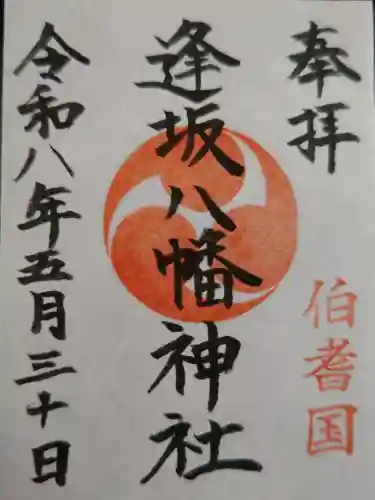 奉拝
伯耆国
逢坂八幡神社
令和八年五月三十日